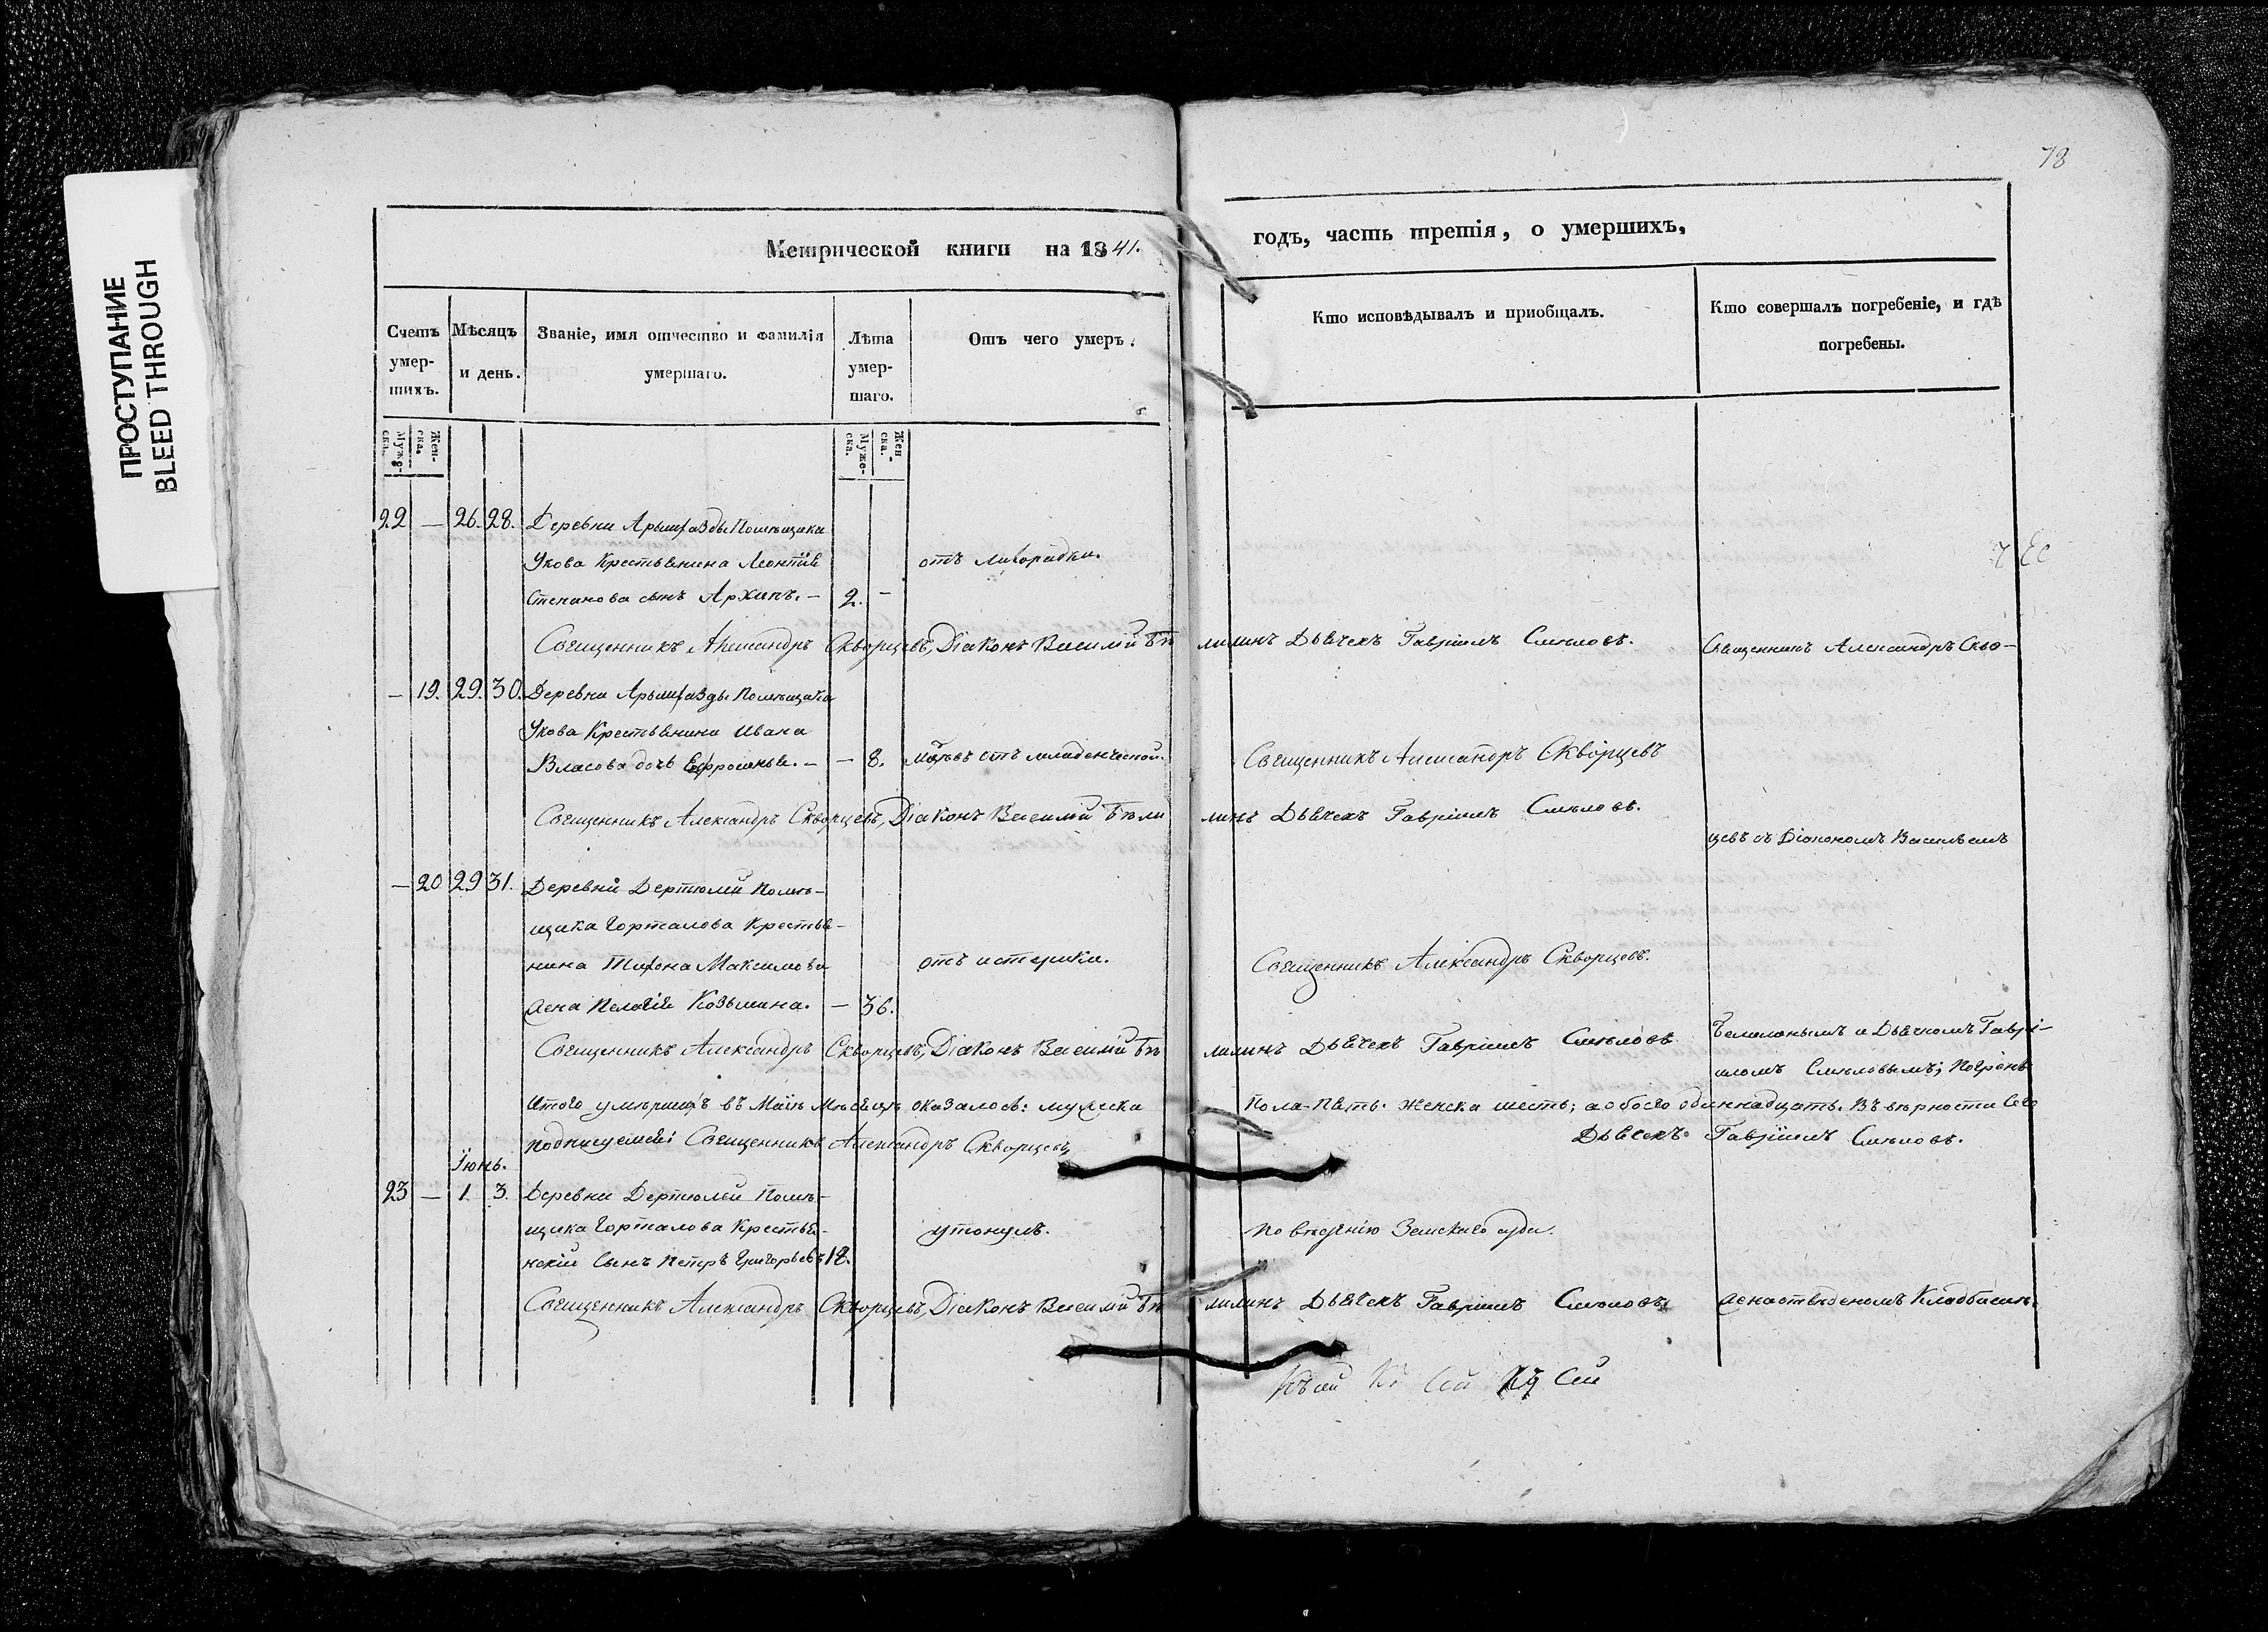 78
ПРОСТУПАНИЕ
BLEED THROUGH
Метрической книги на 1841.
годъ, часть третія, о умершихъ,
Счетъ умер-шихъ.
Мѣсяцъ и день.
Званіе, имя отчество и фамилія умершаго.
Лѣта умер-шаго.
Отъ чего умеръ.
Кто исповѣдывалъ и пріобщалъ.
Кто совершалъ погребеніе, и гдѣ погребены.
Муже-ска.
Жен-ска.
Муже-ска.
Жен ска.
22 — 26. 28. Деревни Помѣщика
Укова Крестьянина Леонтія отъ лихорадки.
Степанова сынъ Архипъ. — 2. —
Священникъ Александръ Скворцевъ, Діаконъ Василій Бѣ
лилинъ Дьячекъ Гавріилъ Смѣловъ.
Священникъ Александръ Скво-
— 19. 29. 30. Деревни Помѣщика
Укова Крестьянина Ивана
Власова дочь Ефросинья. — — 8. отъ младенческой.
Священникъ Александръ Скворцевъ
Священникъ Александръ Скворцевъ, Діаконъ Василій Бѣли
линъ Дьячекъ Гавріилъ Смѣловъ.
цевъ съ Діакономъ Васильемъ
— 20 29 31. Деревни Дертюлей Помѣ-
щика Горталова Крестья-
нина Тихона Максимова отъ истерики.
Священникъ Александръ Скворцевъ.
жена Пелагія Козьмина. — 36.
Священникъ Александръ Скворцевъ, Діаконъ Василій Бѣ
лилинъ Дьячекъ Гавріилъ Смѣловъ
и Дьячкомъ Гаврі-
иломъ Смѣловымъ; Погребены
Итого умершихъ въ Маіѣ Мѣсяцѣ оказалось: мужеска
Пола-Пять. Женска шесть; а обоего одиннадцать. Въ вѣрности сего
подписуемся: Священникъ Александръ Скворцевъ,
Дьячекъ Гавріилъ Смѣловъ.
Іюнь.
23 — 1. 3. Деревни Дертюлей Помѣ-
щика Горталова Крестья- утонулъ.
По Земскаго суда.
нскій Сынъ Петръ Григорьевъ 12.
Священникъ Александръ Скворцевъ, Діаконъ Василій Бѣ
лилинъ Дьячекъ Гавріилъ Смѣловъ
Кладбищѣ.